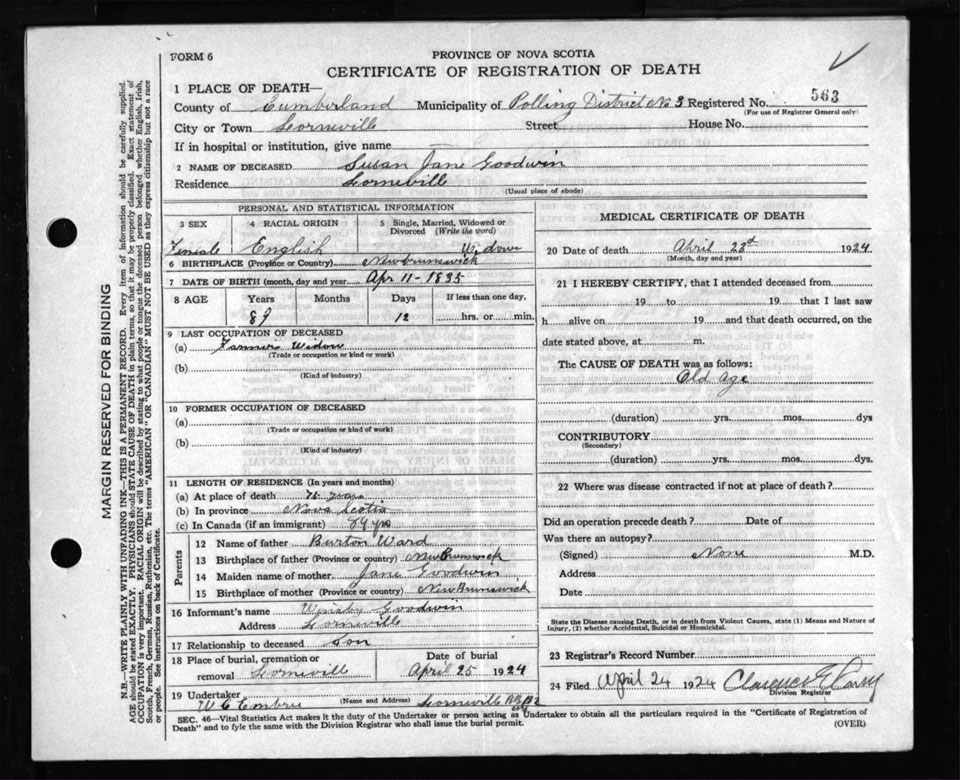 FORM 6
PROVINCE OF NOVA SCOTIA
CERTIFICATE OF REGISTRATION OF DEATH
1 PLACE OF DEATH—
County of Cumberland Municipality of Polling District No 3 Registered No. 563
(For use of Registrar General only)
City or Town Lorneville Street House No.
If in hospital or institution, give name
2 NAME OF DECEASED Susan Jane Goodwin
Residence Lorneville
(Usual place of abode)
PERSONAL AND STATISTICAL INFORMATION
3 SEX 4 RACIAL ORIGIN 5 Single, Married, Widowed or Divorced (Write the word)
Female English Widow
6 BIRTHPLACE (Province or Country) New Brunswick
7 DATE OF BIRTH (month, day and year) Apr 11 - 1835
8 AGE Years Months Days If less than one day,
89 12 hrs. or min.
9 LAST OCCUPATION OF DECEASED
(a) Farmers Widow
(Trade or occupation or kind or work)
(b)
(Kind of industry)
10 FORMER OCCUPATION OF DECEASED
(a)
(Trade or occupation or kind of work)
(b)
(Kind of industry)
11 LENGTH OF RESIDENCE (In years and months)
(a) At place of death years
(b) In province Nova Scotia
(c) In Canada (if an immigrant) 89 yrs
Parents
12 Name of father Burton Ward
13 Birthplace of father (Province or country) New Brunswick
14 Maiden name of mother Jane Goodwin
15 Birthplace of mother (Province or country) New Brunswick
16 Informant's name Goodwin
Address Lorneville
17 Relationship to deceased Son
18 Place of burial, cremation or removal Lorneville Date of burial April 25 1924
19 Undertaker W C Embree (Name and Address) Lorneville
MEDICAL CERTIFICATE OF DEATH
20 Date of death April 23d 1924
(Month, day and year)
21 I HEREBY CERTIFY, that I attended deceased from
19 to 19 that I last saw
h alive on 19 and that death occurred, on
date stated above, at m.
The CAUSE OF DEATH was as follows:
Old age
(duration) yrs. mos. dys
CONTRIBUTORY
(Secondary)
(duration) yrs. mos. dys.
22 Where was disease contracted if not at place of death?
Did an operation precede death? Date of
Was there an autopsy?
(Signed) None M.D.
Address
Date
State the Disease causing Death, or in death from Violent Causes, state (1) Means and Nature of
Injury, (2) whether Accidental, Suicidal or Homicidal.
23 Registrar's Record Number
24 Filed April 24 1924 Clarence E
Division Registrar
SEC. 46—Vital Statistics Act makes it the duty of the Undertaker or person acting as Undertaker to obtain all the particulars required in the "Certificate of Registration of
Death" and to fyle the same with the Division Registrar who shall issue the burial permit.
(OVER)
MARGIN RESERVED FOR BINDING
N.B.—WRITE PLAINLY WITH UNFADING INK—THIS IS A PERMANENT RECORD. Every item of information should be carefully supplied.
AGE should be stated EXACTLY. PHYSICIANS should STATE CAUSE OF DEATH in plain terms, so that it may be properly classified. Exact statement of
OCCUPATION is very important. RACIAL ORIGIN will be described by stating to what people or tongue the deceased person belonged whether English, Irish,
Scotch, French, German, Russian, Ruthenian, etc. The terms "AMERICAN" OR "CANADIAN" MUST NOT BE USED as they express citizenship but not a race
or people. See instructions on back of Certificate.